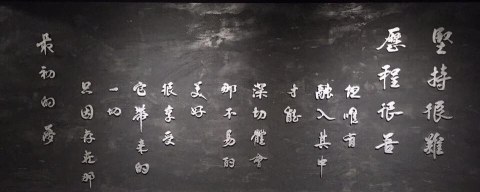 堅持很難
歷程很苦
但唯有
融入其中
才能
深切體會
那不易的
美好
很享受
它帶來的
一切
只因存在那
最初的夢